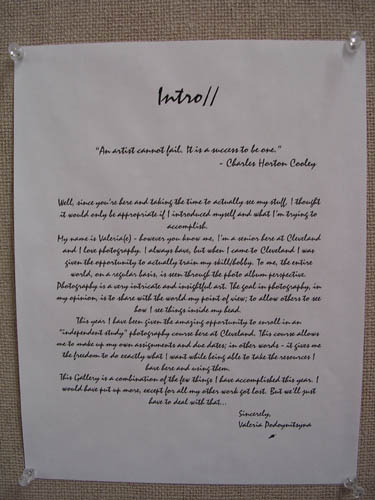 Intro//
"An artist cannot fail. It is a success to be one."
- Charles Horton Cooley
Well, since you're here and taking the time to actually see my stuff, I thought
it would only be appropriate if I introduced myself and what I'm trying to
accomplish.
My name is Valeria(e) - however you know me, I'm a senior here at Cleveland
and I love photography. I always have, but when I came to Cleveland I was
given the opportunity to actually train my skill/hobby. To me, the entire
world, on a regular basis, is seen through the photo album perspective.
Photography is a very intricate and insightful art. The goal in photography, in
my opinion, is to share with the world my point of view; to allow others to see
how I see things inside my head.
This year I have been given the amazing opportunity to enroll in an
"independent study" photography course here at Cleveland. This course allows
me to make up my own assignments and due dates; in other words - it gives me
the freedom to do exactly what I want while being able to take the resources I
have here and using them.
This Gallery is a combination of the few things I have accomplished this year. I
would have put up more, except for all my other work got lost. But we'll just
have to deal with that...
Sincerely,
Valeria Podoynitsyna